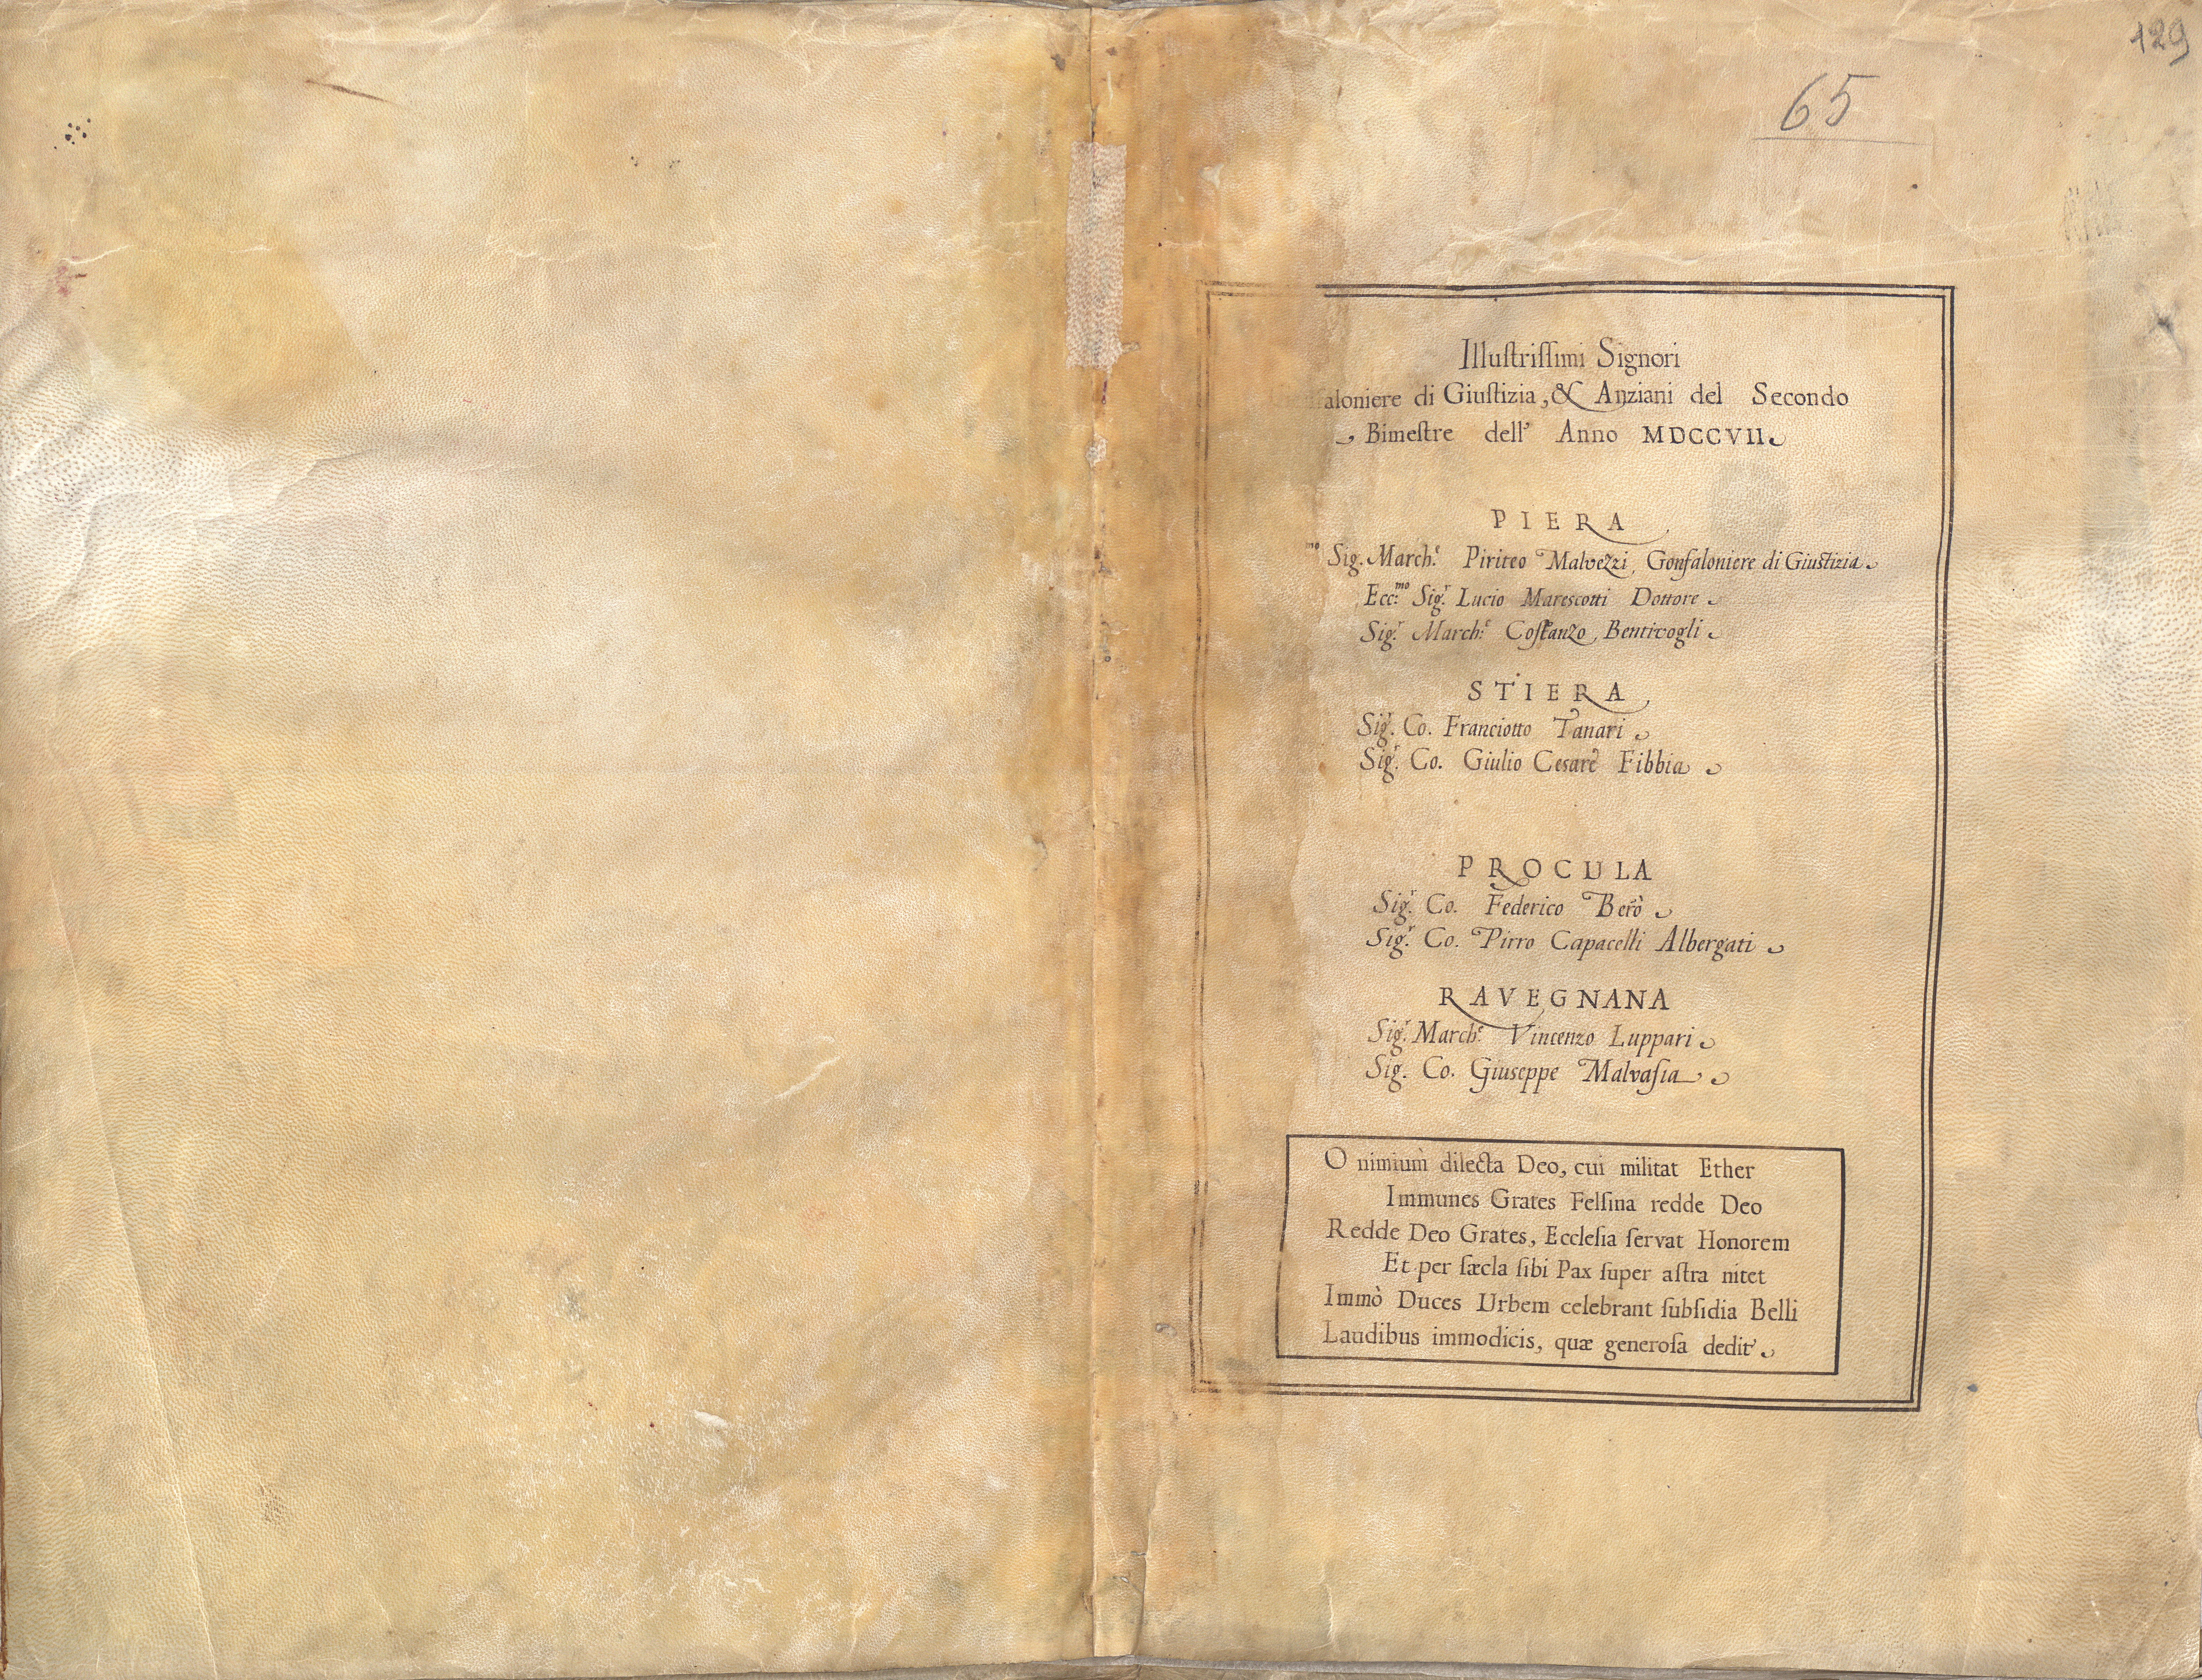 129
65
Illustrissimi Signori
faloniere di Giustizia, & Anziani del Secondo
Bimestre dell' Anno MDCCVII
PIERA
mo Sig. March.e Piriteo Malvezzi, Gonfaloniere di Giustizia
Ecc.mo Sig.r Lucio Marescotti Dottore
Sig.r March.e Costanzo Bentivogli
STIERA
Sig.r Co. Franciotto Tanari
Sig.r Co. Giulio Cesare Fibbia
PROCULA
Sig.r Co. Federico Berò
Sig.r Co. Pirro Capacelli Albergati
RAVEGNANA
Sig.r March.e Vincenzo Luppari
Sig. Co. Giuseppe Malvasia
O nimium dilecta Deo, cui militat Ether
Immunes Grates Felsina redde Deo
Redde Deo Grates, Ecclesia servat Honorem
Et per sæcla sibi Pax super astra nitet
Immò Duces Urbem celebrant subsidia Belli
Laudibus immodicis, quæ generosa dedit